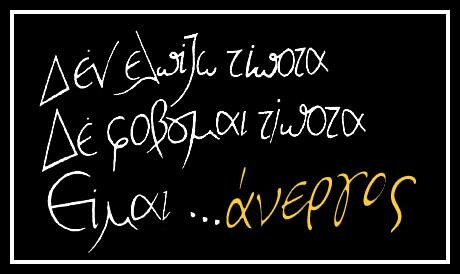 Δέν ελπίζω τίποτα
Δέ φοβουμαι τίποτα
Είμαι ...άνεργος